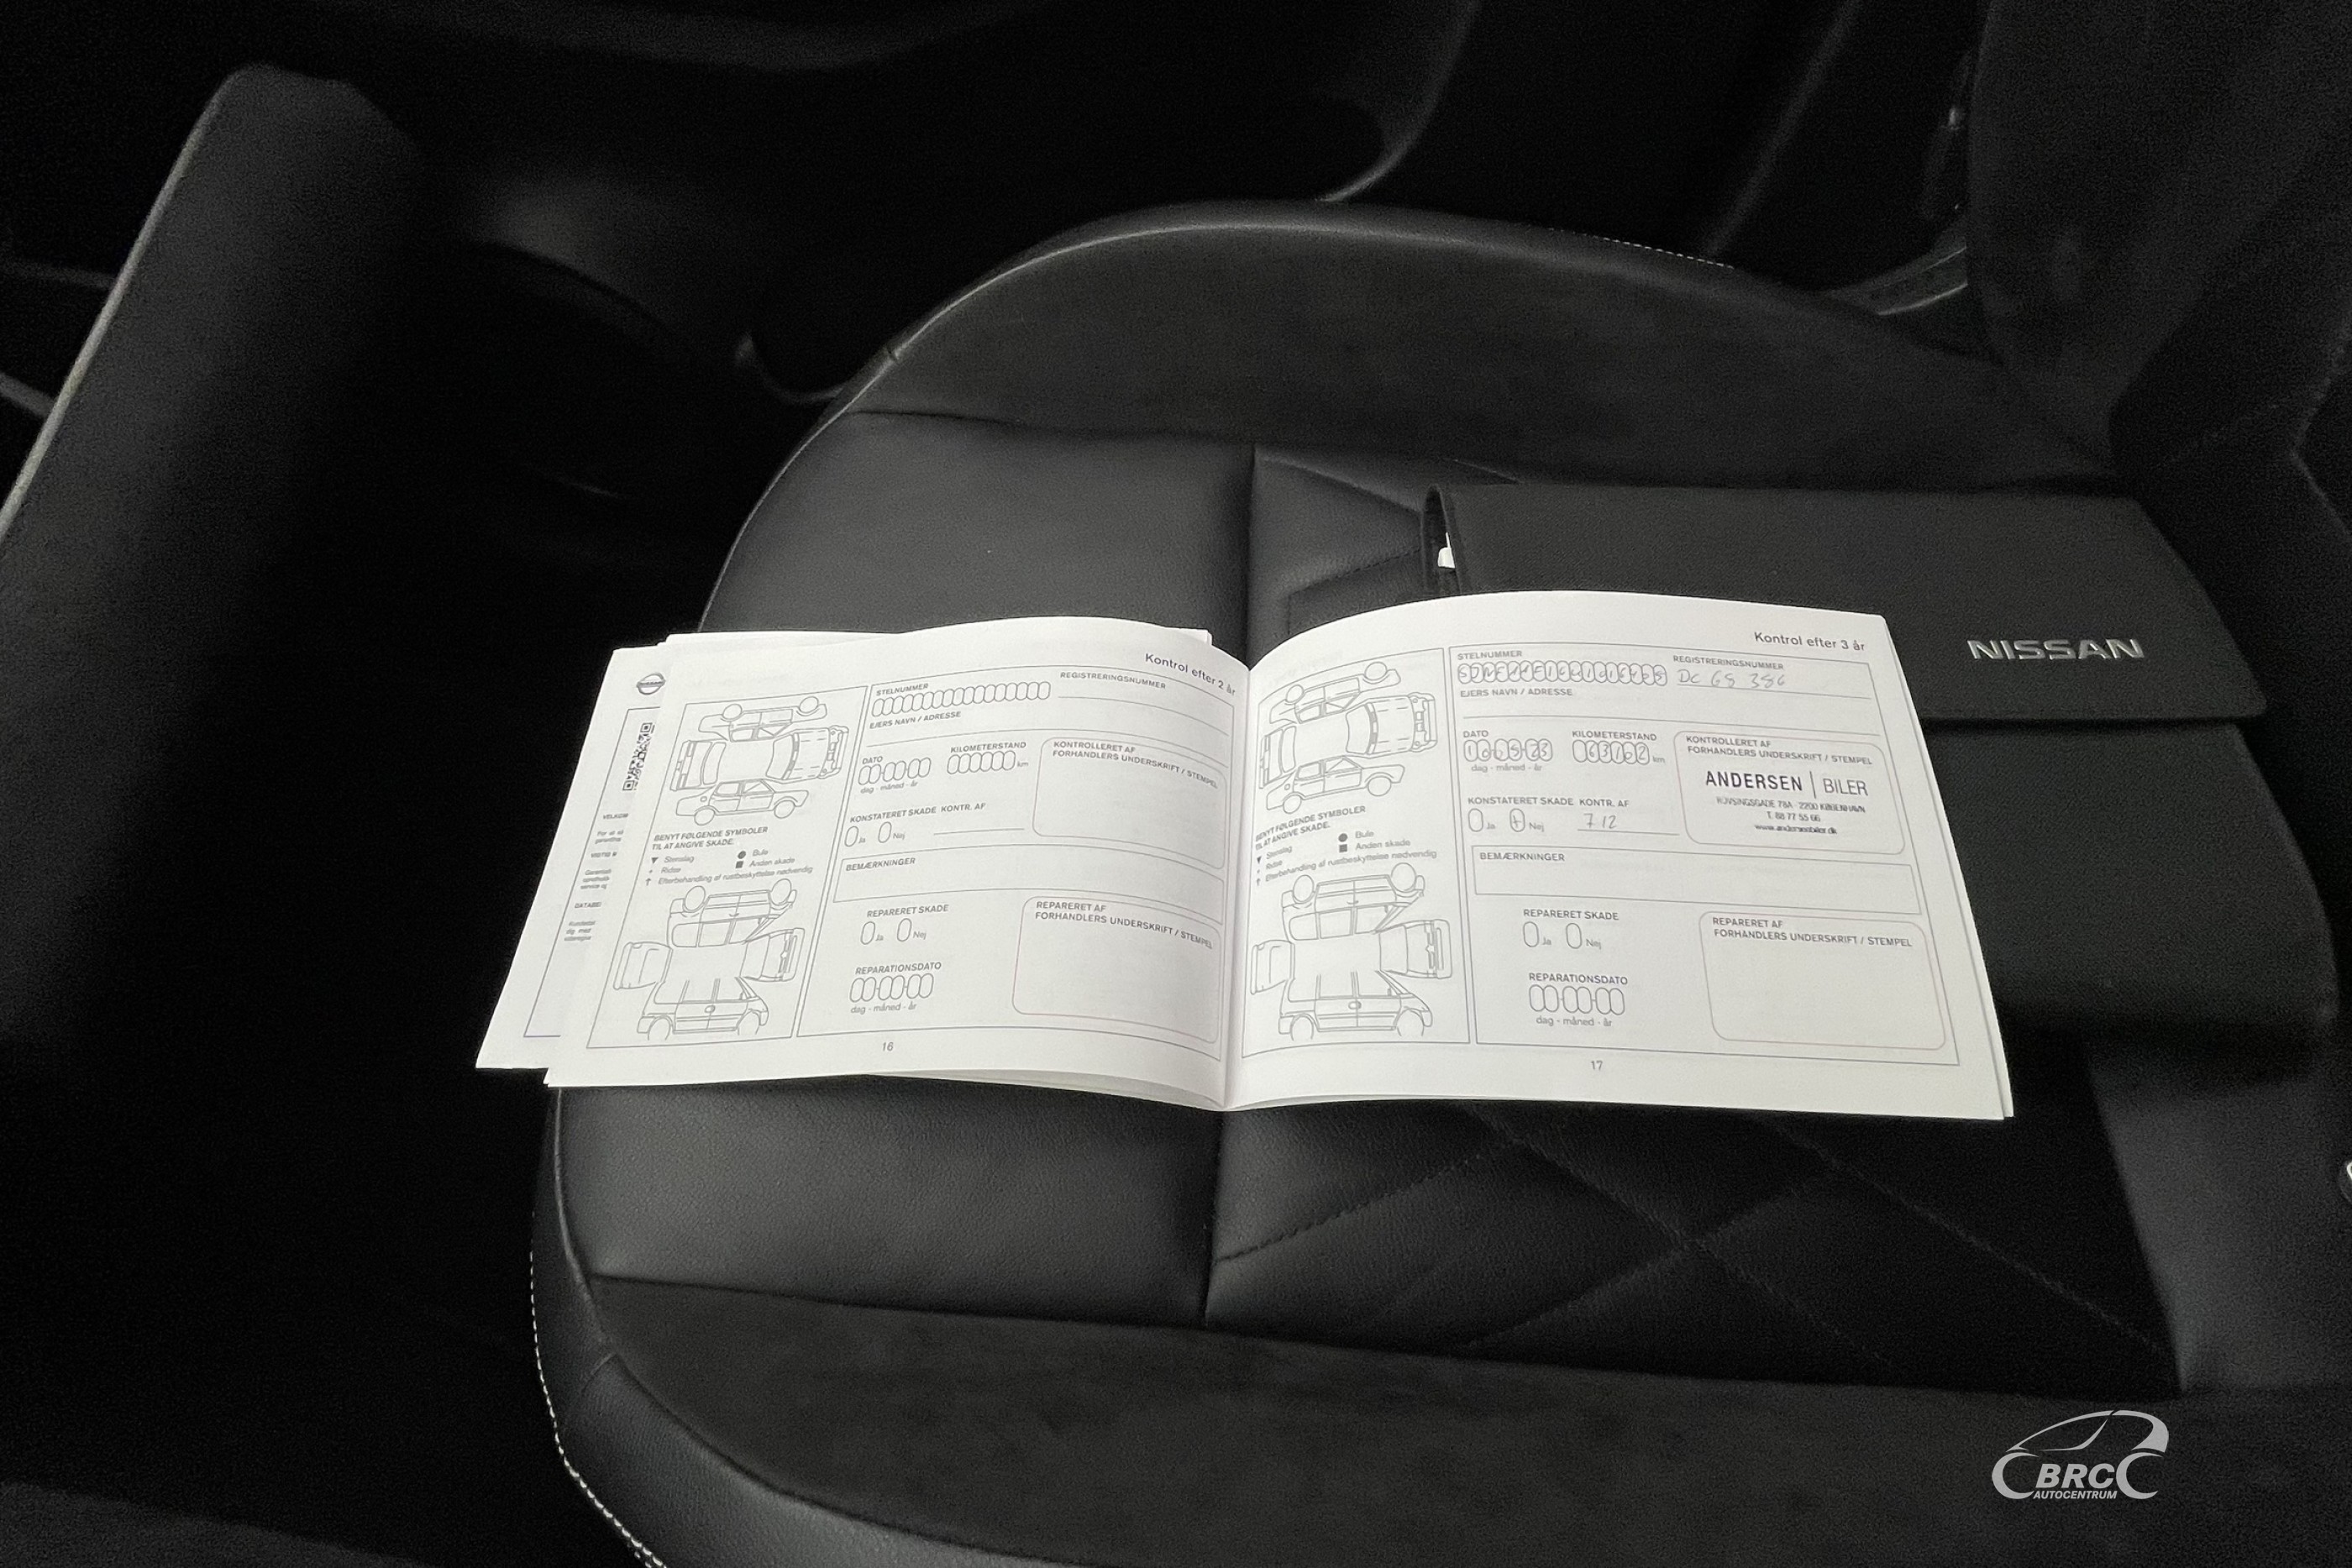 NISSAN
Kontrol efter 2 år
STELNUMMER
REGISTRERINGSNUMMER
EJERS NAVN / ADRESSE
DATO
dag - måned - år
KILOMETERSTAND
km
KONTROLLERET AF
FORHANDLERS UNDERSKRIFT / STEMPEL
KONSTATERET SKADE KONTR. AF
Ja Nej
BENYT FØLGENDE SYMBOLER
TIL AT ANGIVE SKADE.
Stenslag
Bule
Ridse
Anden skade
Efterbehandling af rustbeskyttelse nødvendig
BEMÆRKNINGER
REPARERET SKADE
Ja Nej
REPARERET AF
FORHANDLERS UNDERSKRIFT / STEMPEL
REPARATIONSDATO
dag - måned - år
16
Kontrol efter 3 år
STELNUMMER
REGISTRERINGSNUMMER
DC 68 386
EJERS NAVN / ADRESSE
DATO
dag - måned - år
KILOMETERSTAND
63192 km
KONTROLLERET AF
FORHANDLERS UNDERSKRIFT / STEMPEL
ANDERSEN | BILER
ROVSINGSGADE 78A · 2200 KØBENHAVN
T. 88 77 55 66
www.andersenbiler.dk
KONSTATERET SKADE KONTR. AF
Ja Nej
712
BENYT FØLGENDE SYMBOLER
TIL AT ANGIVE SKADE.
Stenslag
Bule
Ridse
Anden skade
Efterbehandling af rustbeskyttelse nødvendig
BEMÆRKNINGER
REPARERET SKADE
Ja Nej
REPARERET AF
FORHANDLERS UNDERSKRIFT / STEMPEL
REPARATIONSDATO
dag - måned - år
17
BRC
AUTOCENTRUM